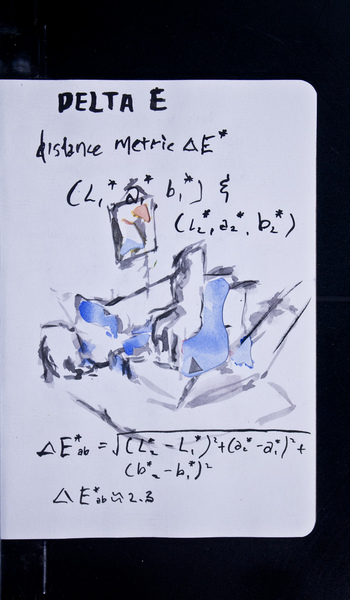 DELTA E
distance metric ΔE*
(L₁*, a₁*, b₁*) &
(L₂*, a₂*, b₂*)
ΔE*ab = √(L₂* - L₁*)² + (a₂* - a₁*)² +
(b*₂ - b₁*)²
ΔE*ab ≈ 2.3